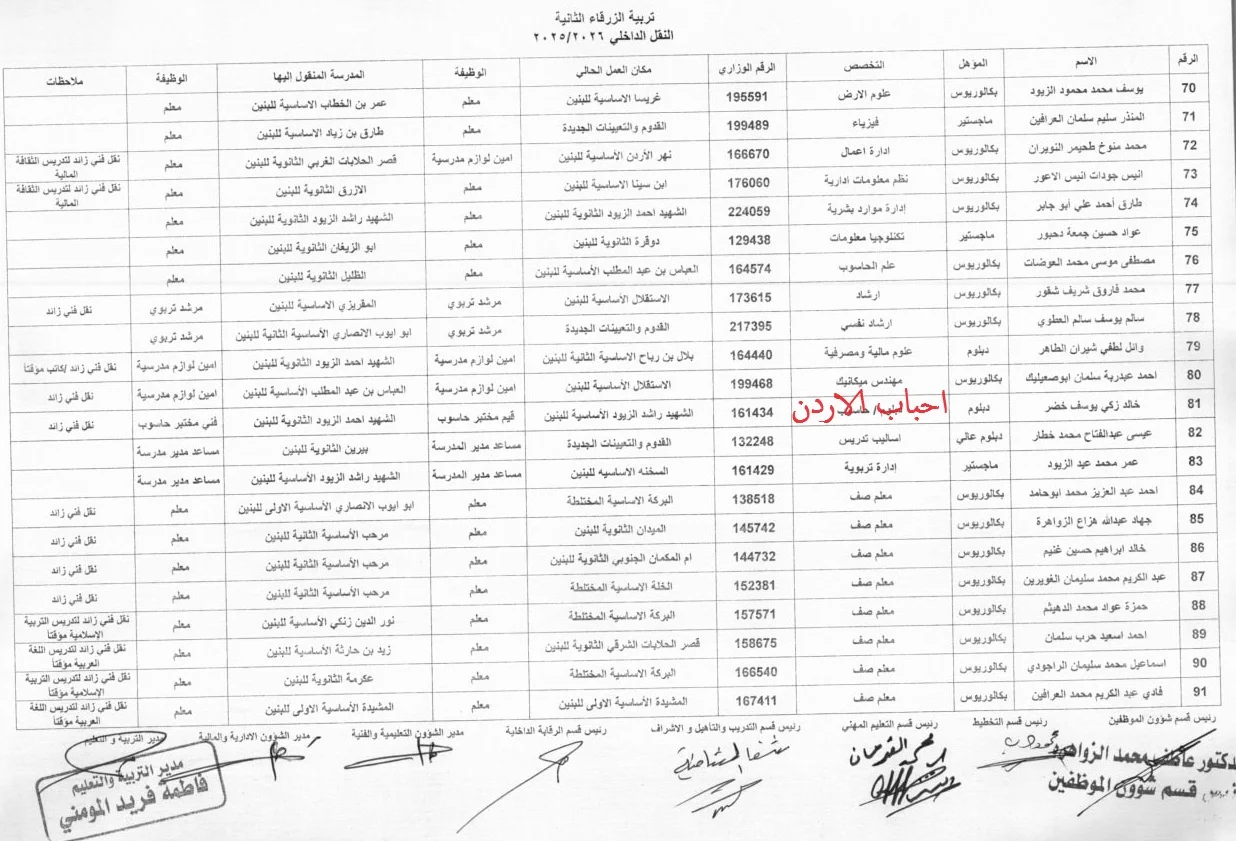 تربية الزرقاء الثانية
النقل الداخلي ٢٠٢٥/٢٠٢٦
الرقم الاسم المؤهل التخصص الرقم الوزاري مكان العمل الحالي الوظيفة المدرسة المنقول إليها الوظيفة ملاحظات
70 يوسف محمد محمود الزيود بكالوريوس علوم الارض 195591 غريسا الاساسية للبنين معلم عمر بن الخطاب الاساسية للبنين معلم
71 المنذر سليم سلمان العرافين ماجستير فيزياء 199489 القدوم والتعيينات الجديدة معلم طارق بن زياد الاساسية للبنين معلم
72 محمد منوخ طحيمر النويران بكالوريوس ادارة اعمال 166670 نهر الأردن الأساسية للبنين امين لوازم مدرسية قصر الحلابات الغربي الثانوية للبنين معلم نقل فني زائد لتدريس الثقافة المالية
73 انيس جودات انيس الاعور بكالوريوس نظم معلومات ادارية 176060 ابن سينا الاساسية للبنين معلم الازرق الثانوية للبنين معلم نقل فني زائد لتدريس الثقافة المالية
74 طارق أحمد علي أبو جابر بكالوريوس إدارة موارد بشرية 224059 الشهيد احمد الزيود الثانوية للبنين معلم الشهيد راشد الزيود الثانوية للبنين معلم
75 عواد حسين جمعة دحبور ماجستير تكنلوجيا معلومات 129438 دوقرة الثانوية للبنين معلم ابو الزيغان الثانوية للبنين معلم
76 مصطفى موسى محمد العوضات بكالوريوس علم الحاسوب 164574 العباس بن عبد المطلب الأساسية للبنين معلم الظليل الثانوية للبنين معلم
77 محمد فاروق شريف شقور بكالوريوس ارشاد 173615 الاستقلال الأساسية للبنين مرشد تربوي المقريزي الاساسية للبنين مرشد تربوي نقل فني زائد
78 سالم يوسف سالم العطوي بكالوريوس ارشاد نفسي 217395 القدوم والتعيينات الجديدة مرشد تربوي ابو ايوب الانصاري الأساسية الثانية للبنين مرشد تربوي
79 وائل لطفي شيران الطاهر دبلوم علوم مالية ومصرفية 164440 بلال بن رباح الاساسية الثانية للبنين امين لوازم مدرسية الشهيد احمد الزيود الثانوية للبنين امين لوازم مدرسية نقل فني زائد /كاتب مؤقتاً
80 احمد عبدربة سلمان ابوصعيليك بكالوريوس مهندس ميكانيك 199468 الاستقلال الأساسية للبنين امين لوازم مدرسية العباس بن عبد المطلب الأساسية للبنين امين لوازم مدرسية نقل فني زائد
احباب الاردن
81 خالد زكي يوسف خضر دبلوم / حاسوب 161434 الشهيد راشد الزيود الأساسية للبنين قيم مختبر حاسوب الشهيد احمد الزيود الثانوية للبنين فني مختبر حاسوب نقل فني زائد
82 عيسى عبدالفتاح محمد خطار دبلوم عالي اساليب تدريس 132248 القدوم والتعيينات الجديدة مساعد مدير المدرسة بيرين الثانوية للبنين مساعد مدير مدرسة
83 عمر محمد عيد الزيود ماجستير إدارة تربوية 161429 السخنه الاساسيه للبنين مساعد مدير المدرسة الشهيد راشد الزيود الأساسية للبنين مساعد مدير مدرسة
84 احمد عبد العزيز محمد ابوحامد بكالوريوس معلم صف 138518 البركة الاساسية المختلطة معلم ابو ايوب الانصاري الأساسية الاولى للبنين معلم نقل فني زائد
85 جهاد عبدالله هزاع الزواهرة بكالوريوس معلم صف 145742 الميدان الثانوية للبنين معلم مرحب الأساسية الثانية للبنين معلم نقل فني زائد
86 خالد ابراهيم حسين غنيم بكالوريوس معلم صف 144732 ام المكمان الجنوبي الثانوية للبنين معلم مرحب الأساسية الثانية للبنين معلم نقل فني زائد
87 عبد الكريم محمد سليمان الغويرين بكالوريوس معلم صف 152381 الخلة الاساسية المختلطة معلم مرحب الأساسية الثانية للبنين معلم نقل فني زائد
88 حمزة عواد محمد الدهيثم بكالوريوس معلم صف 157571 البركة الاساسية المختلطة معلم نور الدين زنكي الأساسية للبنين معلم نقل فني زائد لتدريس التربية الإسلامية مؤقتاً
89 احمد اسعيد حرب سلمان بكالوريوس معلم صف 158675 قصر الحلابات الشرقي الثانوية للبنين معلم زيد بن حارثة الأساسية للبنين معلم نقل فني زائد لتدريس اللغة العربية مؤقتاً
90 اسماعيل محمد سليمان الراجودي بكالوريوس معلم صف 166540 البركة الاساسية المختلطة معلم عكرمة الثانوية للبنين معلم نقل فني زائد لتدريس التربية الإسلامية مؤقتاً
91 فادي عبد الكريم محمد العرافين بكالوريوس معلم صف 167411 المشيدة الأساسية الاولى للبنين معلم المشيدة الأساسية الاولى للبنين معلم نقل فني زائد لتدريس اللغة العربية مؤقتاً
رئيس قسم شؤون الموظفين رئيس قسم التخطيط رئيس قسم التعليم المهني رئيس قسم التدريب والتأهيل و الاشراف رئيس قسم الرقابة الداخلية مدير الشؤون التعليمية والفنية مدير الشؤون الادارية والمالية مدير التربية و التعليم
دكتور عاطف محمد الزواهرة
قسم شؤون الموظفين
مدير التربية والتعليم
فاطمة فريد المومني